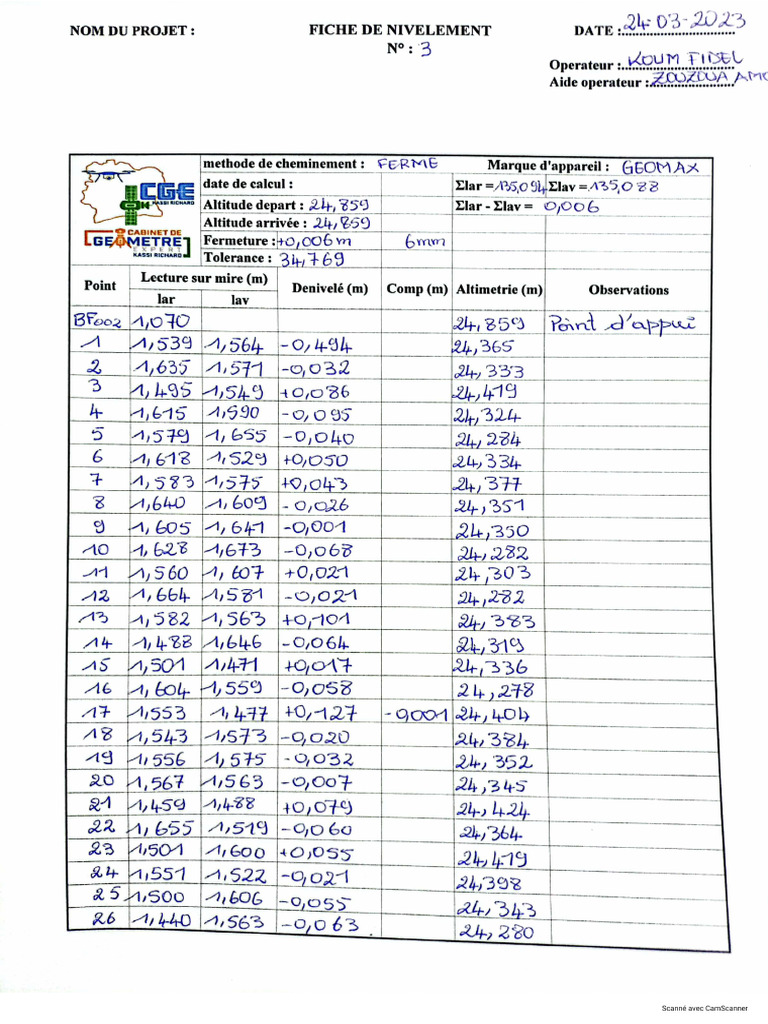 NOM DU PROJET : FICHE DE NIVELEMENT DATE : 24-03-2023
N° : 3
Operateur : KOUM FIDEL
Aide operateur : ZOUZOUA AMO
methode de cheminement : FERME Marque d'appareil : GEOMAX
date de calcul : Σlar = 135,094 Σlav = 135,088
Altitude depart : 24,859 Σlar - Σlav = 0,006
Altitude arrivée : 24,859
Fermeture : +0,006m 6mm
Tolerance : 34,769
CGE
KASSI RICHARD
CABINET DE
GEOMETRE
EXPERT
KASSI RICHARD
Point Lecture sur mire (m) Denivelé (m) Comp (m) Altimetrie (m) Observations
lar lav
BF002 1,070 24,859 Point d'appui
1 1,539 1,564 -0,494 24,365
2 1,635 1,571 -0,032 24,333
3 1,495 1,549 +0,086 24,419
4 1,615 1,590 -0,095 24,324
5 1,579 1,655 -0,040 24,284
6 1,618 1,529 +0,050 24,334
7 1,583 1,575 +0,043 24,377
8 1,640 1,609 -0,026 24,351
9 1,605 1,641 -0,001 24,350
10 1,628 1,673 -0,068 24,282
11 1,560 1,607 +0,021 24,303
12 1,664 1,581 -0,021 24,282
13 1,582 1,563 +0,101 24,383
14 1,488 1,646 -0,064 24,319
15 1,501 1,471 +0,017 24,336
16 1,604 1,559 -0,058 24,278
17 1,553 1,477 +0,127 -0,001 24,404
18 1,543 1,573 -0,020 24,384
19 1,556 1,575 -0,032 24,352
20 1,567 1,563 -0,007 24,345
21 1,459 1,488 +0,079 24,424
22 1,655 1,519 -0,060 24,364
23 1,501 1,600 +0,055 24,419
24 1,551 1,522 -0,021 24,398
25 1,500 1,606 -0,055 24,343
26 1,440 1,563 -0,063 24,280
Scanné avec CamScanner